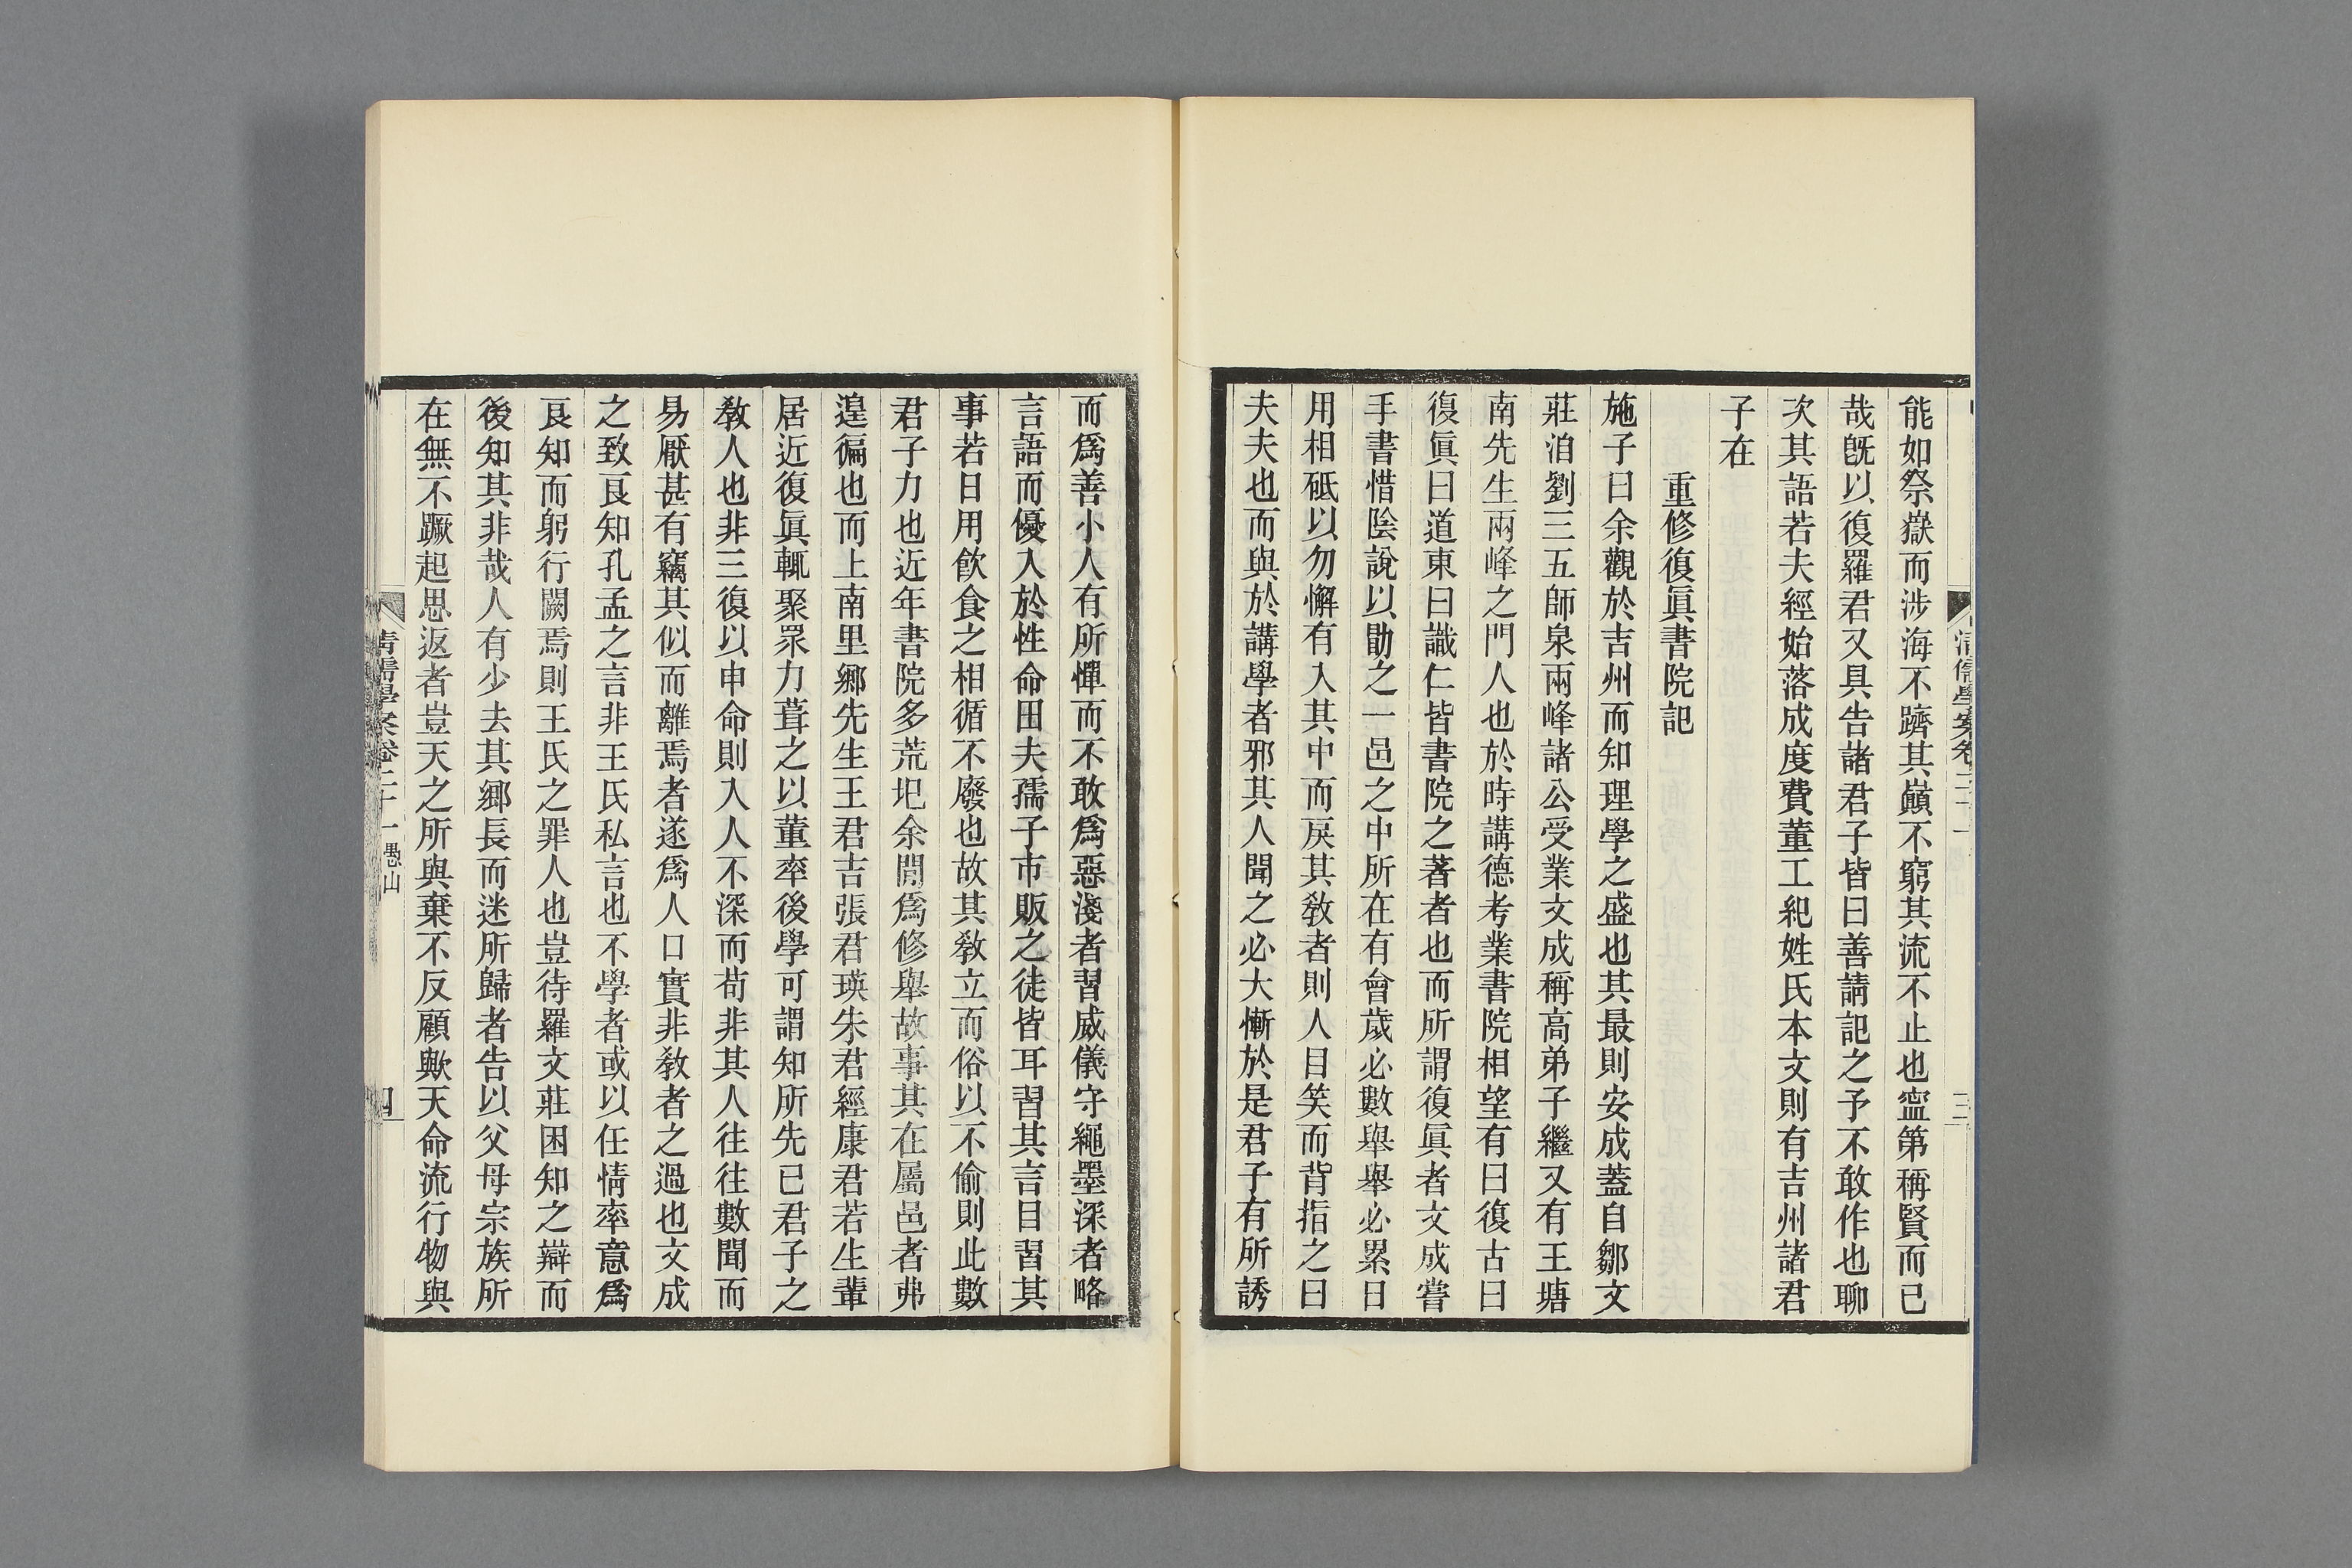 能如祭嶽而涉海不躋其巔不窮其流不止也寍第稱賢而已
哉旣以復羅君又具告諸君子皆曰善請記之予不敢作也聊
次其語若夫經始落成度費董工紀姓氏本文則有吉州諸君
子在
重修復眞書院記
施子曰余觀於吉州而知理學之盛也其最則安成蓋自鄒文
莊洎劉三五師泉兩峰諸公受業文成稱高弟子繼又有王塘
南先生兩峰之門人也於時講德考業書院相望有曰復古曰
復眞曰道東曰識仁皆書院之著者也而所謂復眞者文成嘗
手書惜陰說以勖之一邑之中所在有會歲必數舉舉必累日
用相砥以勿懈有入其中而戾其敎者則人目笑而背指之曰
夫夫也而與於講學者邪其人聞之必大慚於是君子有所誘
而爲善小人有所憚而不敢爲惡淺者習威儀守繩墨深者略
言語而優入於性命田夫孺子市販之徒皆耳習其言目習其
事若日用飮食之相循不廢也故其敎立而俗以不偷則此數
君子力也近年書院多荒圯余閒爲修舉故事其在屬邑者弗
遑徧也而上南里鄉先生王君吉張君瑛朱君經康君若生輩
居近復眞輒聚眾力葺之以董率後學可謂知所先已君子之
敎人也非三復以申命則入人不深而苟非其人往往數聞而
易厭甚有竊其似而離焉者遂爲人口實非敎者之過也文成
之致良知孔孟之言非王氏私言也不學者或以任情率意爲
良知而躬行闕焉則王氏之罪人也豈待羅文莊困知之辯而
後知其非哉人有少去其鄉長而迷所歸者告以父母宗族所
在無不蹶起思返者豈天之所與棄不反顧歟天命流行物與
清儒學案卷二十一 愚山
四